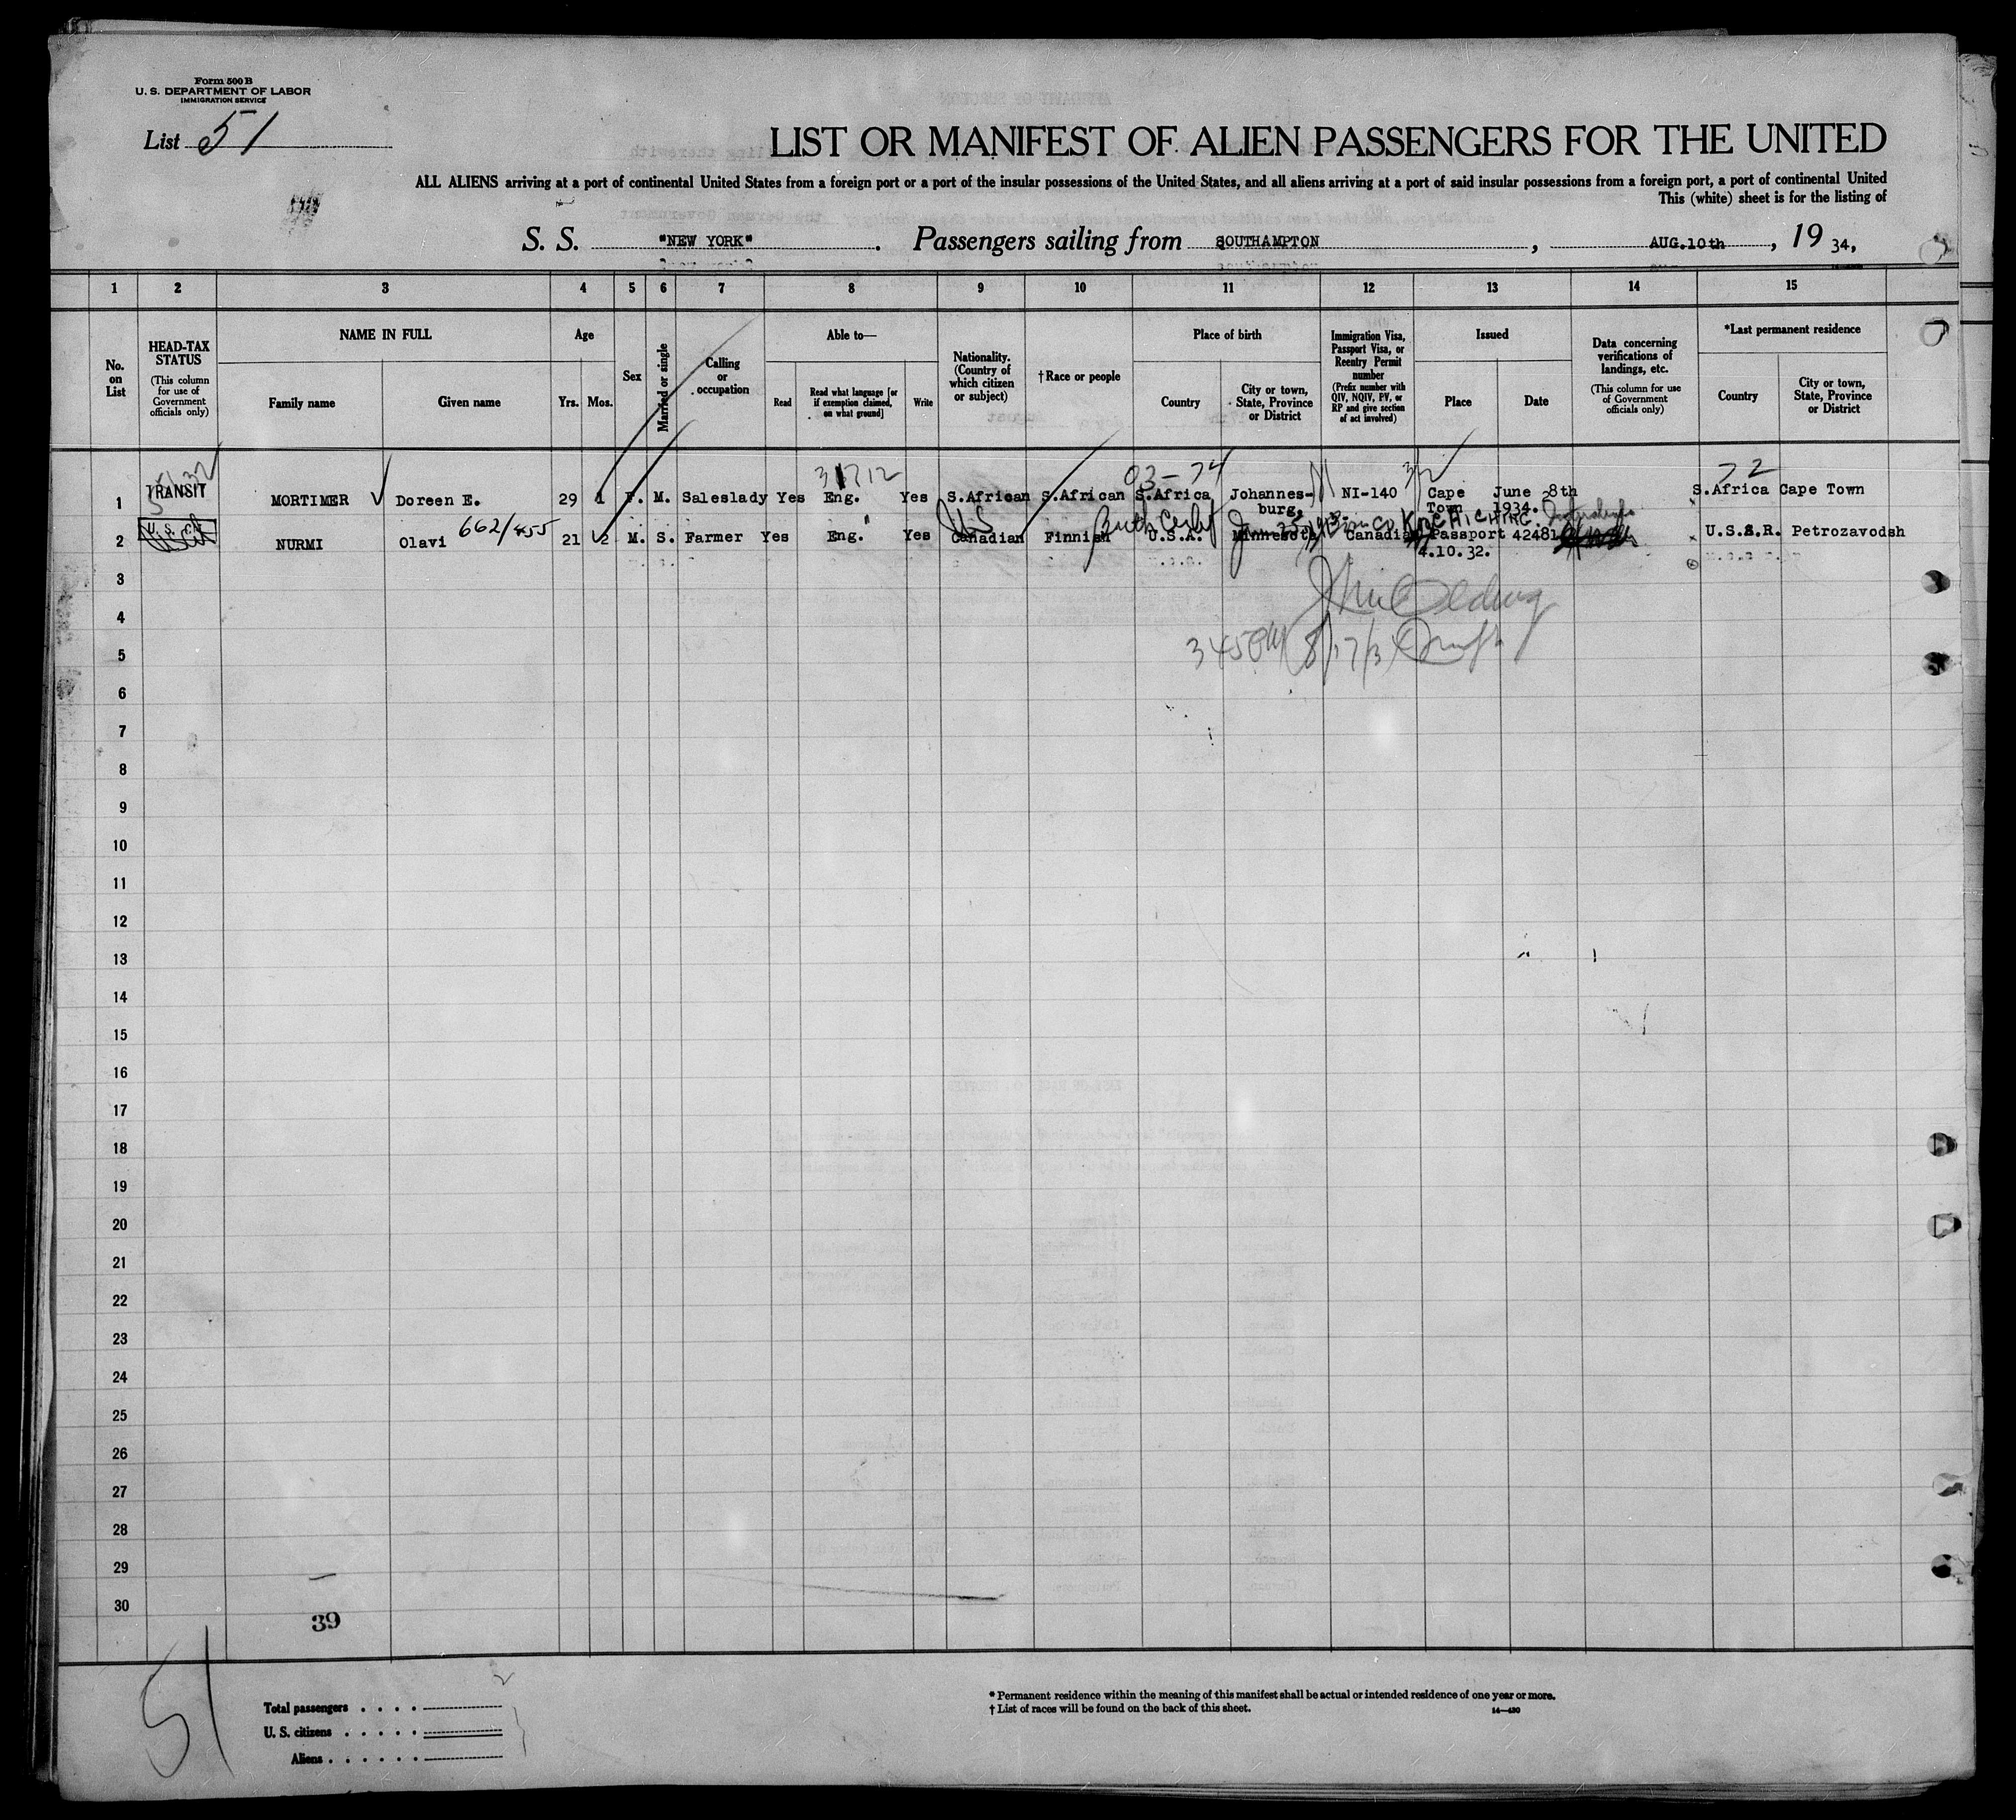 Form 500 B
U. S. DEPARTMENT OF LABOR
IMMIGRATION SERVICE
List 51
LIST OR MANIFEST OF ALIEN PASSENGERS FOR THE UNITED
ALL ALIENS arriving at a port of continental United States from a foreign port or a port of the insular possessions of the United States, and all aliens arriving at a port of said insular possessions from a foreign port, a port of continental United
This (white) sheet is for the listing of
S. S. "NEW YORK". Passengers sailing from SOUTHAMPTON, AUG.10th, 19 34,
1 2 3 4 5 6 7 8 9 10 11 12 13 14 15
No. on List
HEAD-TAX STATUS
(This column for use of Government officials only)
NAME IN FULL
Family name Given name
Age
Yrs. Mos.
Sex
Married or single
Calling or occupation
Able to—
Read
Read what language [or if exemption claimed, on what ground]
Write
Nationality. (Country of which citizen or subject)
†Race or people
Place of birth
Country
City or town, State, Province or District
Immigration Visa, Passport Visa, or Reentry Permit number
(Prefix number with QIV, NQIV, PV, or RP and give section of act involved)
Issued
Place Date
Data concerning verifications of landings, etc.
(This column for use of Government officials only)
*Last permanent residence
Country
City or town, State, Province or District
03-74
72
1 TRANSIT MORTIMER Doreen E. 29 1 F. M. Saleslady Yes Eng. Yes S.African S.African S.Africa Johannes-burg. NI-140 Cape Town June 8th 1934. S.Africa Cape Town
662/455
US
2 NURMI Olavi 21 2 M. S. Farmer Yes Eng. Yes Canadian Finnish U.S.A. Minnesota Canadian Passport 42481 U.S.S.R. Petrozavodsh
4.10.32.
3
4
5
6
7
8
9
10
11
12
13
14
15
16
17
18
19
20
21
22
23
24
25
26
27
28
29
30
39
51
Total passengers
U. S. citizens
Aliens
* Permanent residence within the meaning of this manifest shall be actual or intended residence of one year or more.
† List of races will be found on the back of this sheet.
14—430